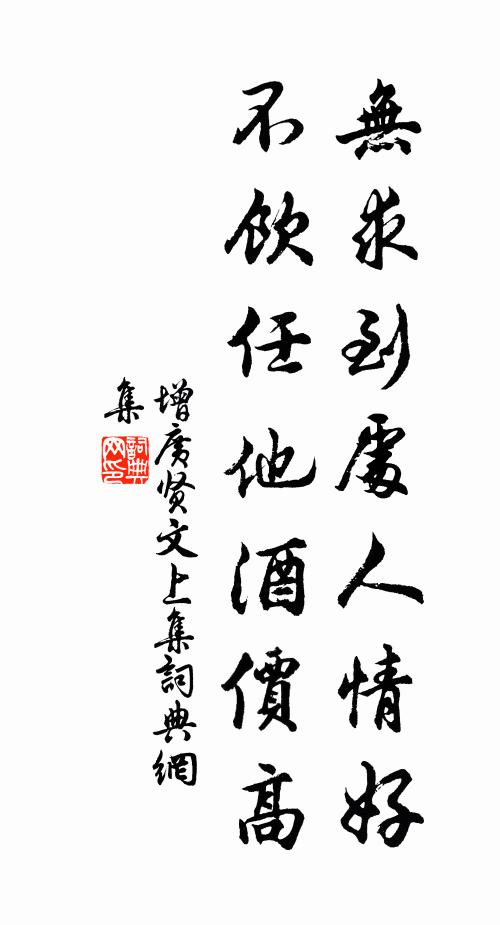 無求到處人情好
不飲任他酒價高
增廣贤文上集詞典網
集
詞典網印